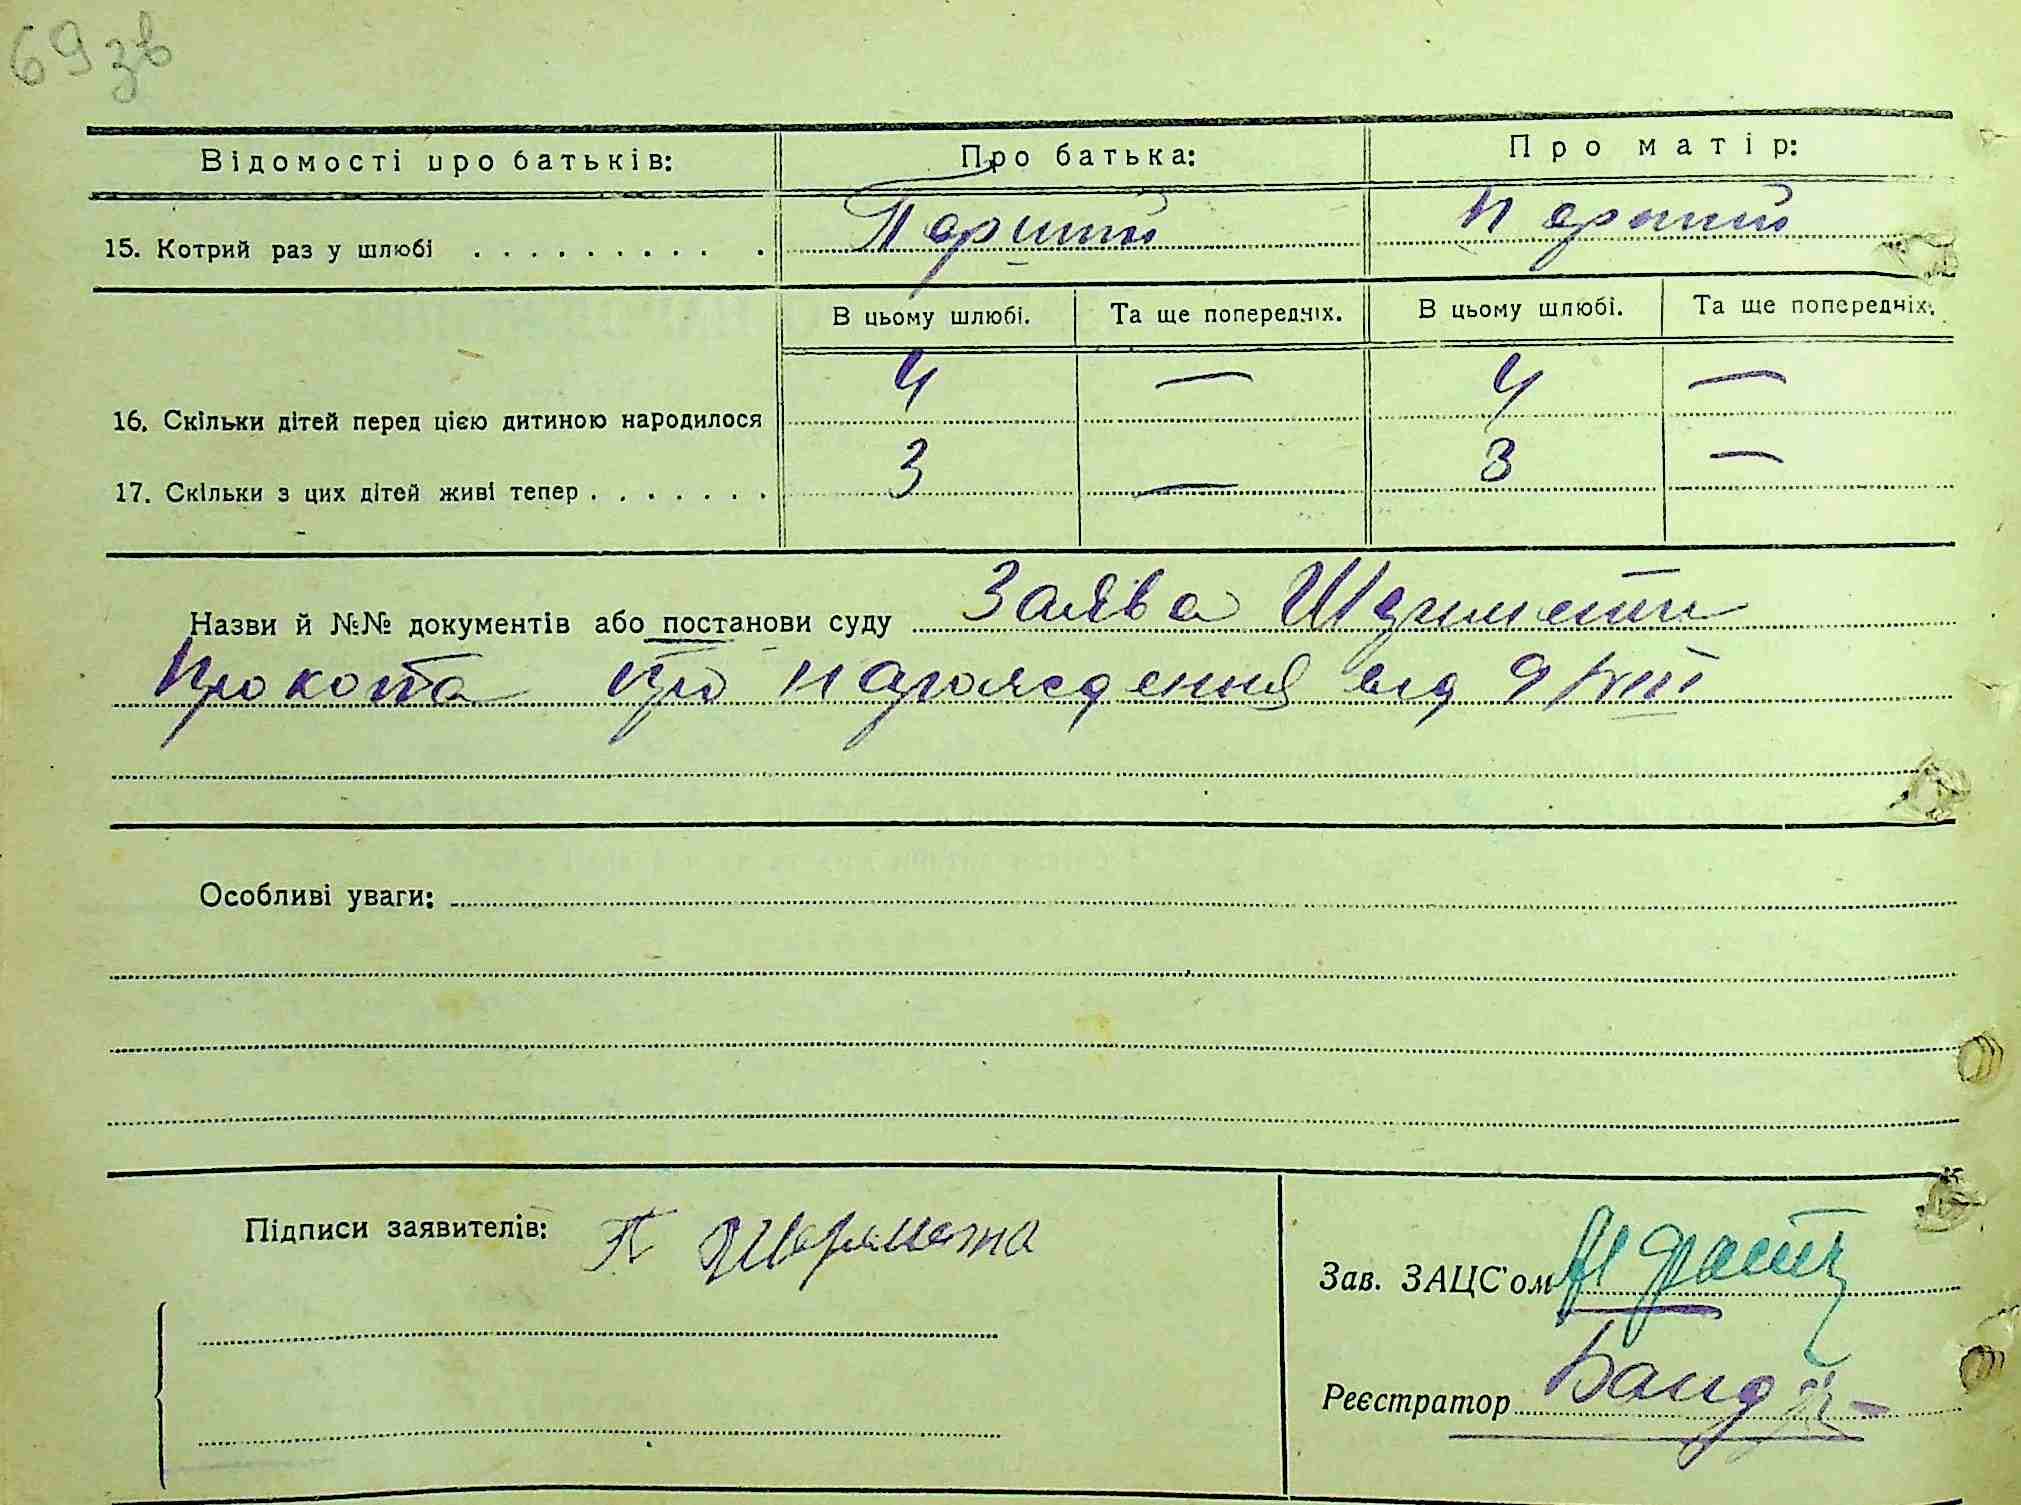 69 зв
Відомості про батьків: Про батька: Про матір:
15. Котрий раз у шлюбі . . . . . . . . . . Перший Перший
В цьому шлюбі. Та ще попередніх. В цьому шлюбі. Та ще попередніх.
16. Скільки дітей перед цією дитиною народилося 4 — 4 —
17. Скільки з цих дітей живі тепер . . . . . . . 3 — 3 —
Назви й №№ документів або постанови суду Заява
Прокопа про народження від 9/VIII
Особливі уваги:
Підписи заявителів: П Шеремета
Зав. ЗАЦС'ом
Реєстратор